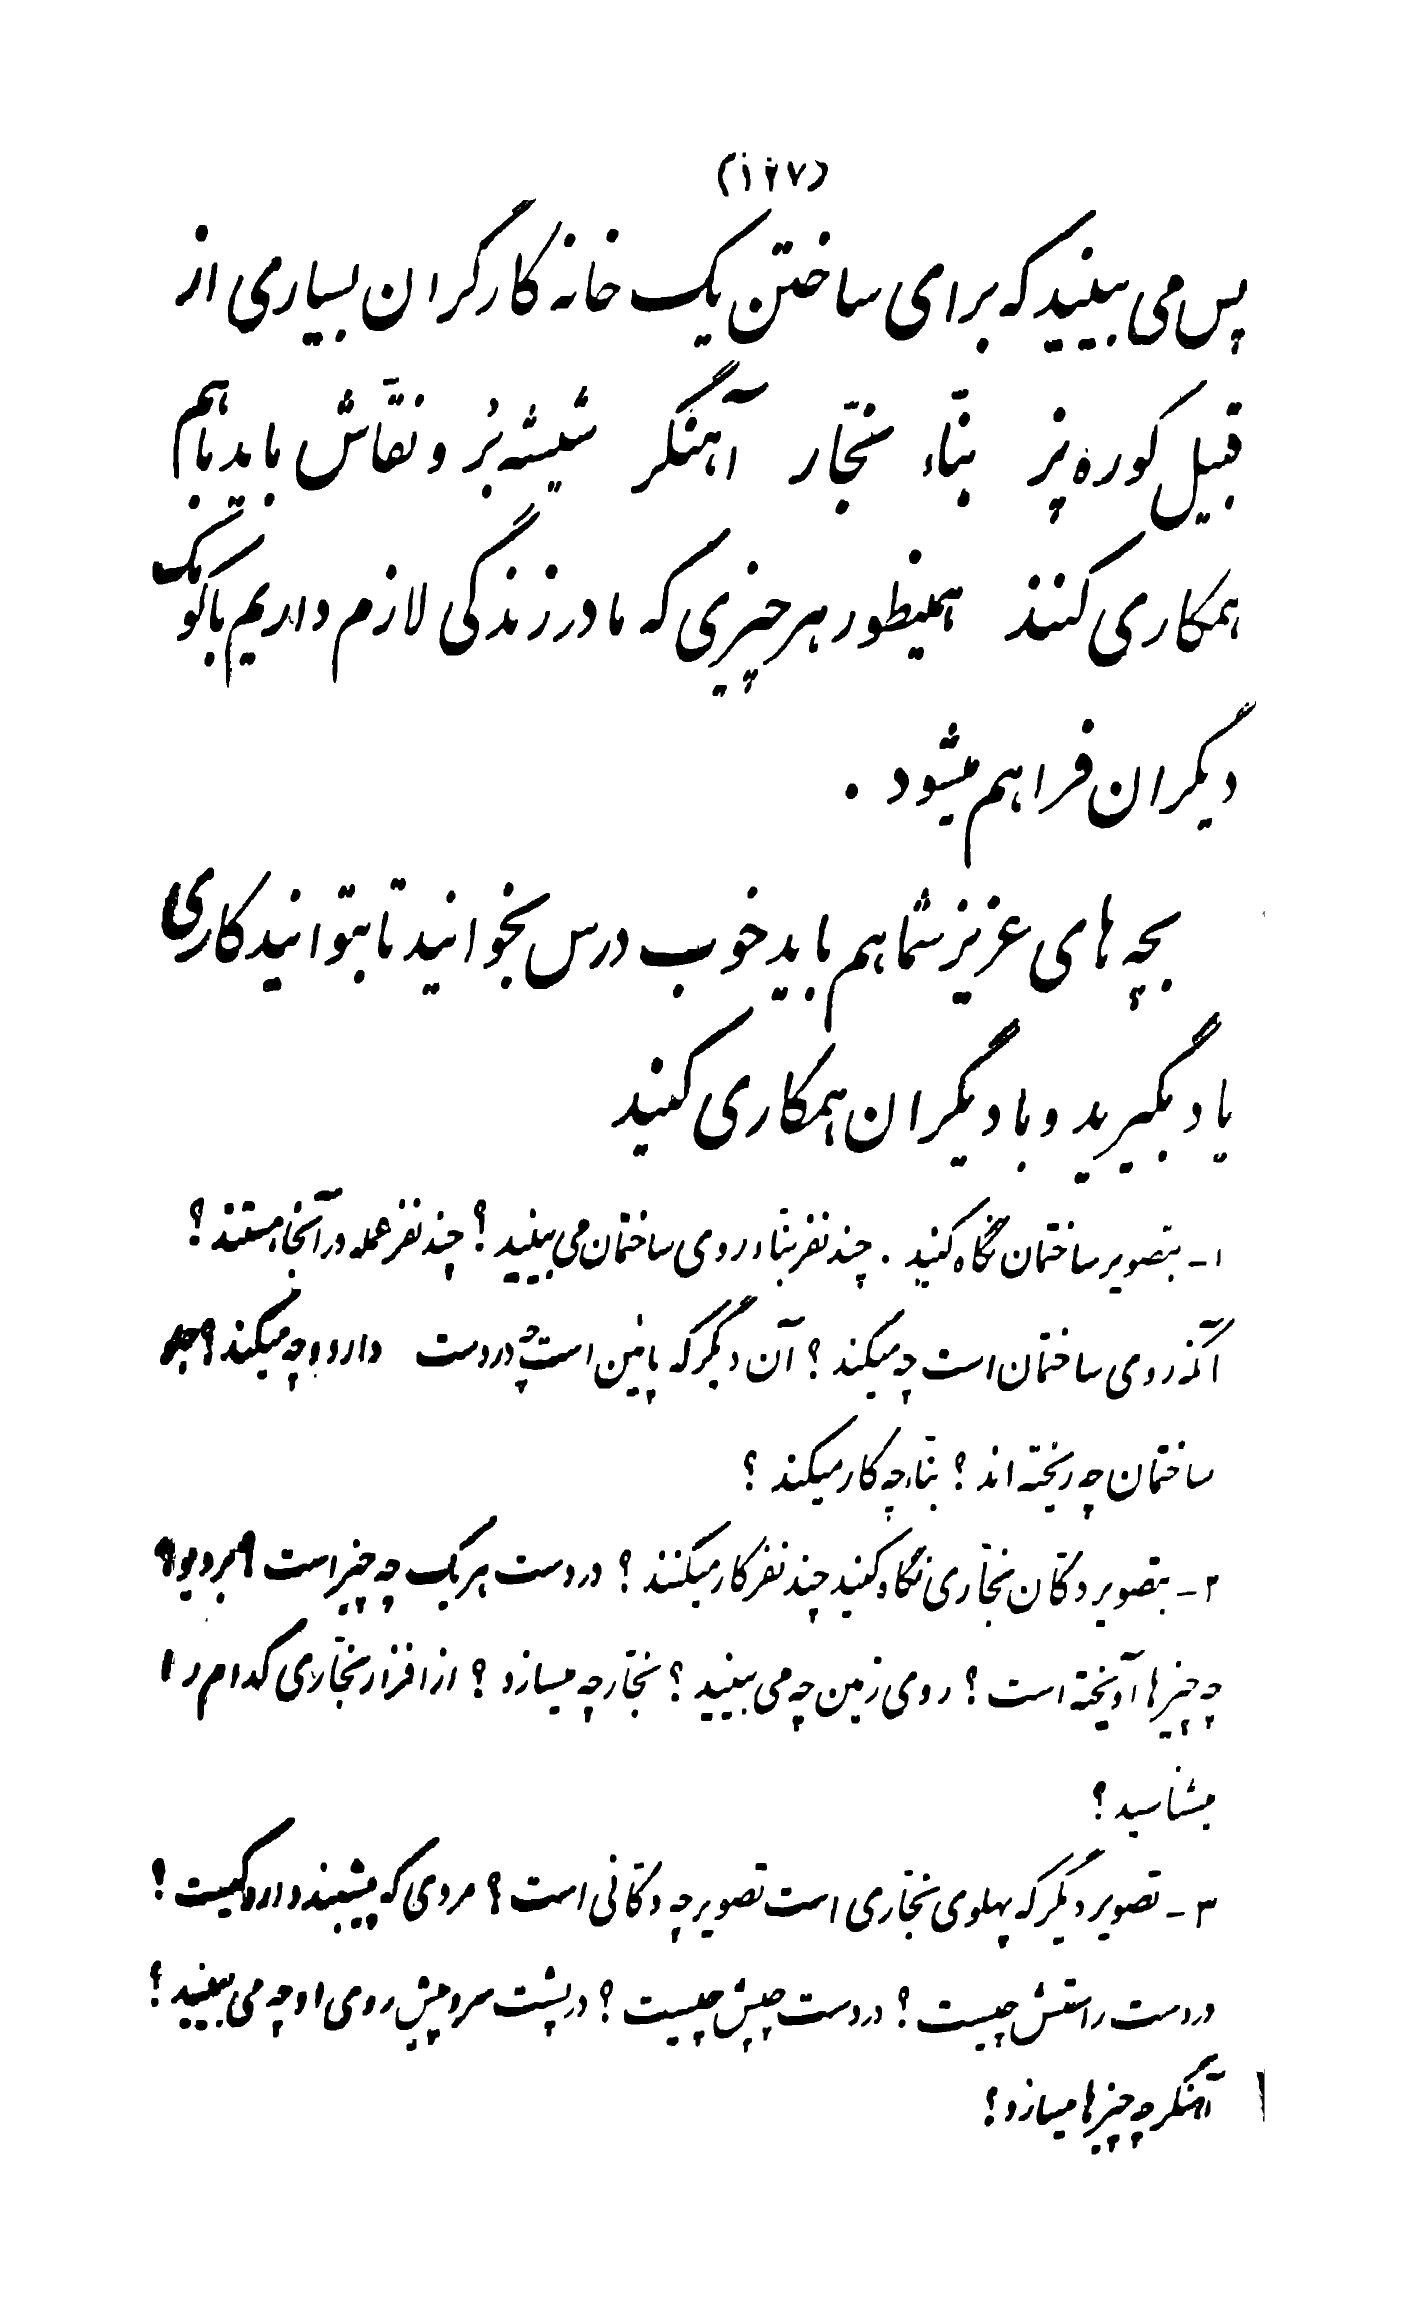 (۱۲۷)
پس می بینید که برای ساختن یک خانه کارگران بسیاری از
قبیل کوره پز بنّاء نجّار آهنگر شیشه بُر و نقّاش باید باهم
همکاری کنند همینطور هر چیزی که ما در زندگی لازم داریم با کومک
دیگران فراهم میشود .
بچه های عزیز شما هم باید خوب درس بخوانید تا بتوانید کاری
یاد بگیرید و با دیگران همکاری کنید
۱- بتصویر ساختمان نگاه کنید . چند نفر بنّاء روی ساختمان می بینید ؟ چند نفر عمله در آنجا هستند ؟
آنکه روی ساختمان است چه میکند ؟ آن دیگر که پائین است چه در دست دارد و چه میکند ؟
ساختمان چه ریخته اند ؟ بنّاء چه کار میکند ؟
۲- بتصویر دکّان نجّاری نگاه کنید چند نفر کار میکنند ؟ در دست هر یک چه چیز است ؟ بر دیوار
چه چیزها آویخته است ؟ روی زمین چه می بینید ؟ نجّار چه میسازد ؟ از افزار نجّاری کدام را
میشناسید ؟
۳- تصویر دیگر که پهلوی نجّاری است تصویر چه دکّانی است ؟ مردی که پیشبند دارد کیست ؟
در دست راستش چیست ؟ در دست چپش چیست ؟ در پشت سر و پیش روی او چه می بینید ؟
آهنگر چه چیزها میسازد ؟